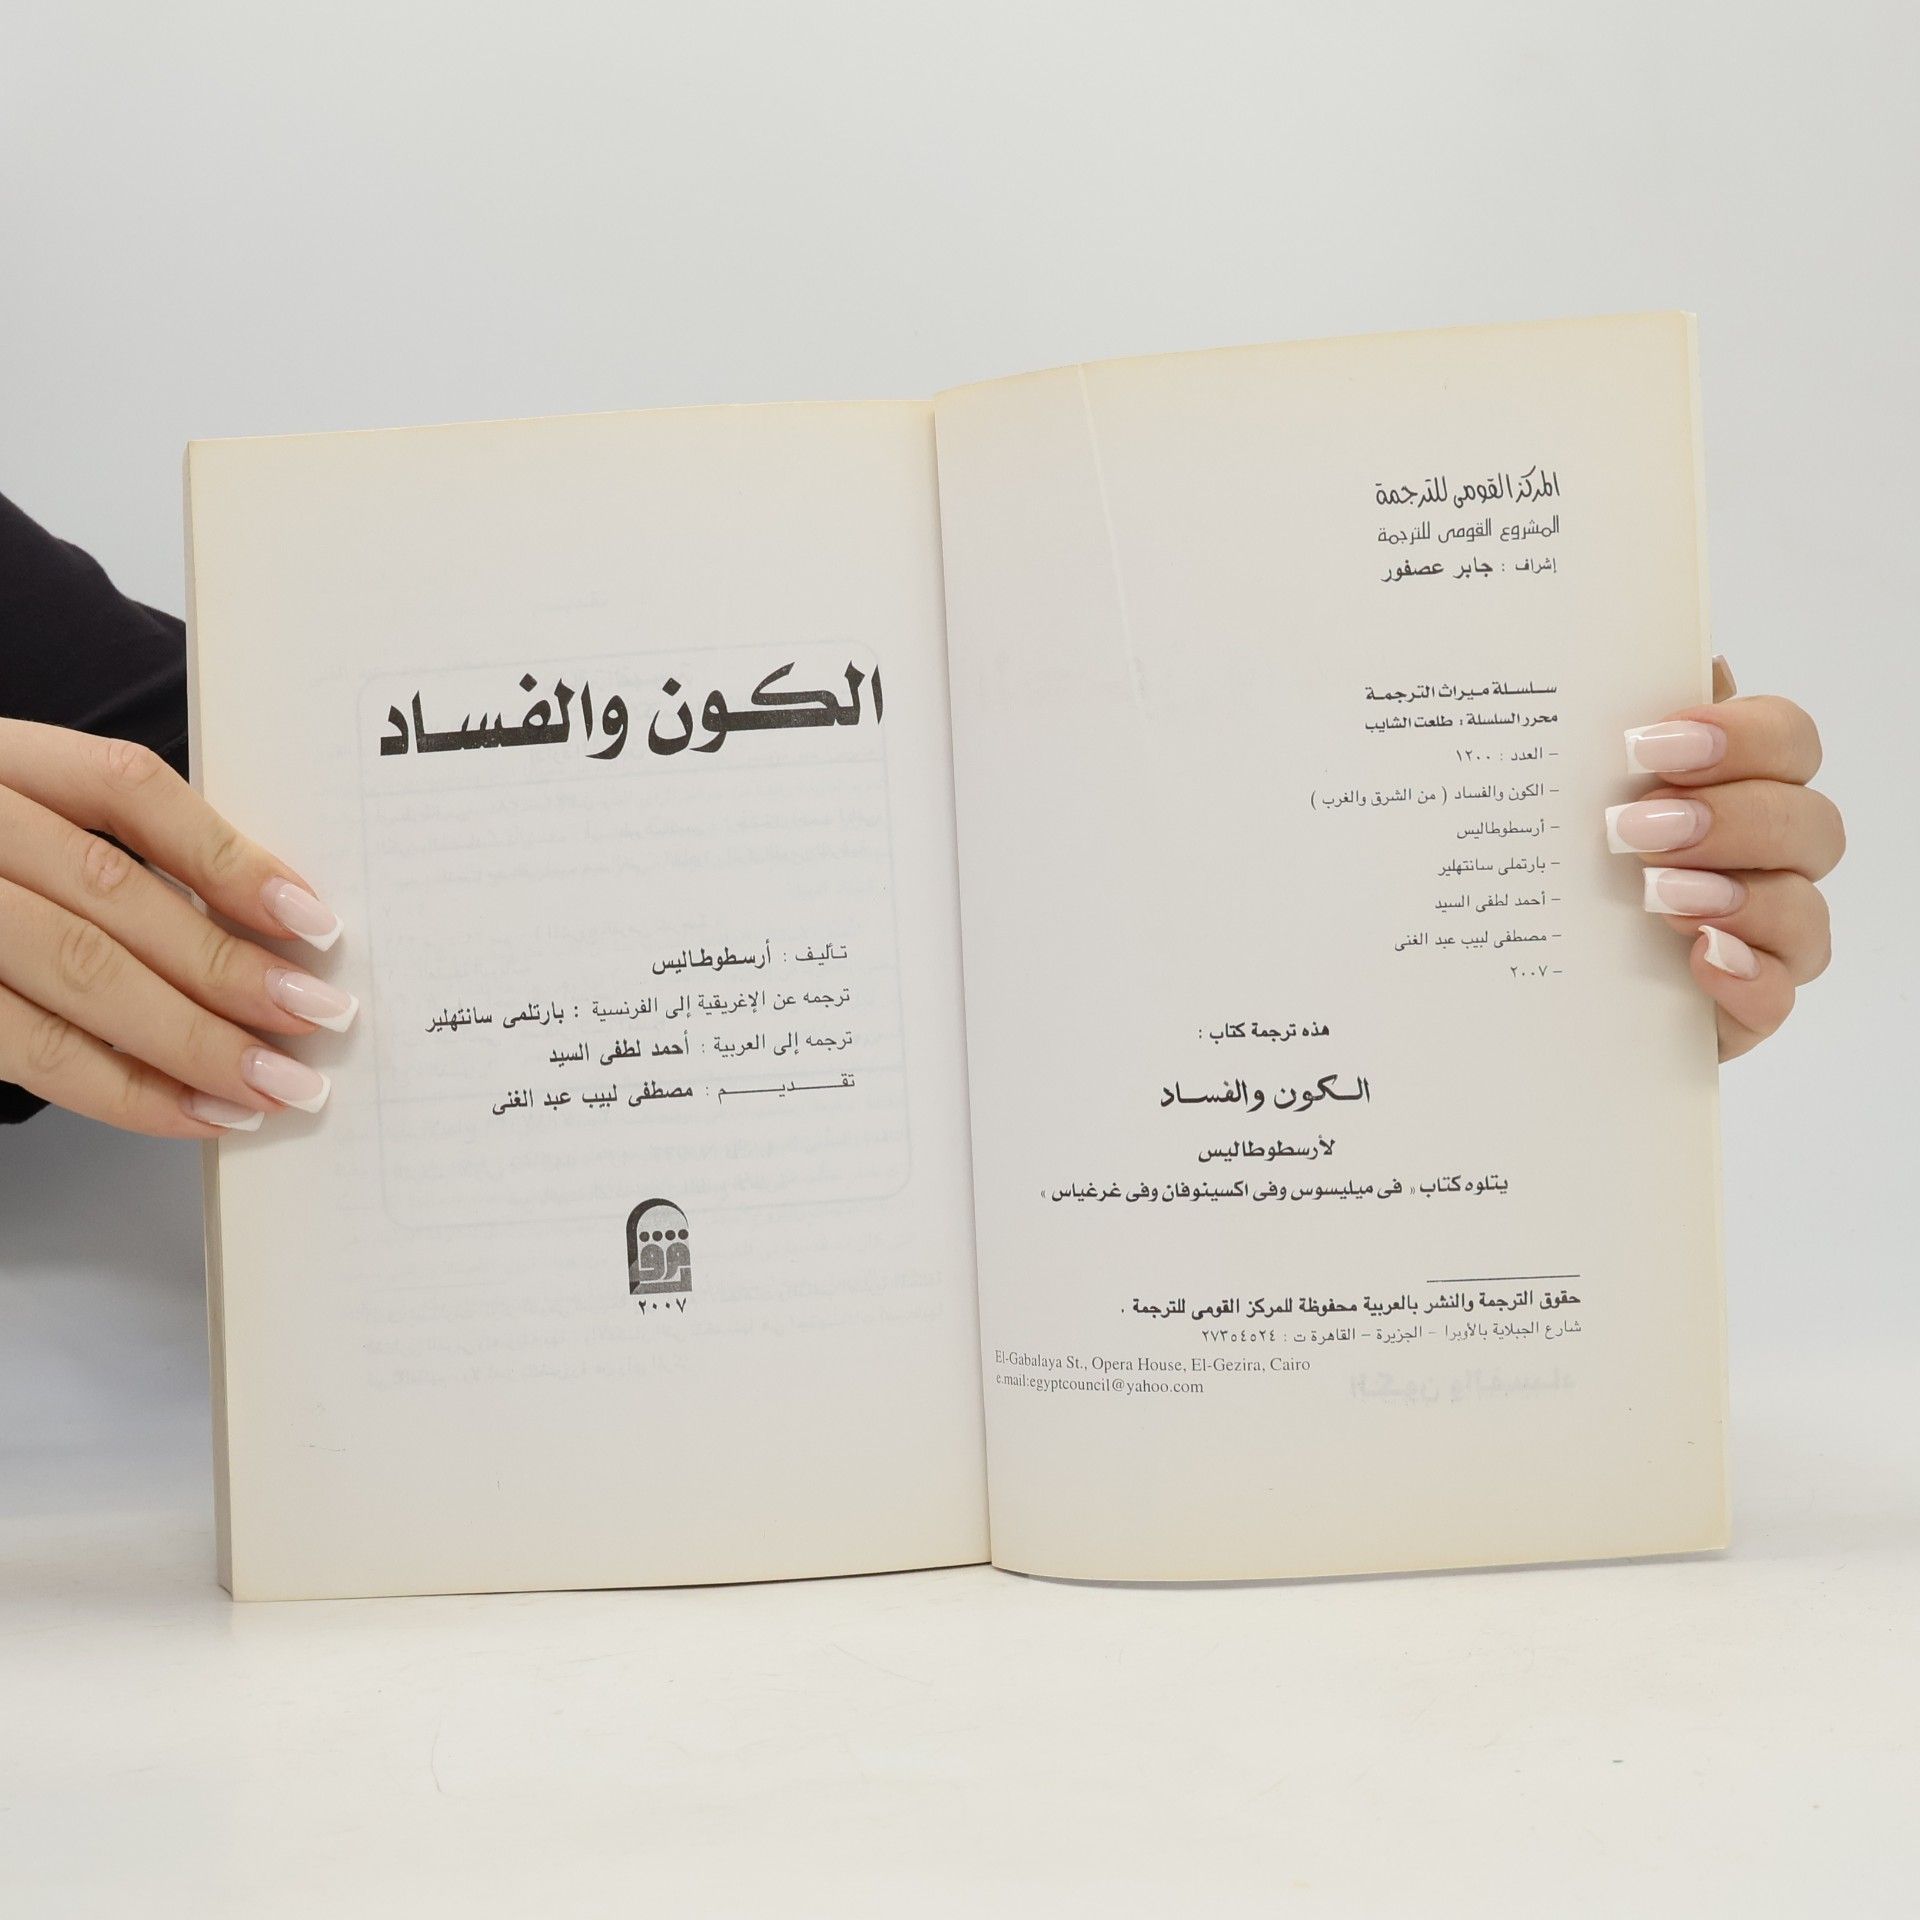 المركز القومى للترجمة
المشروع القومى للترجمة
إشراف : جابر عصفور
سلسلة ميراث الترجمة
محرر السلسلة : طلعت الشايب
– العدد : ١٢٠٠
– الكون والفساد ( من الشرق والغرب )
– أرسطوطاليس
– بارتملى سانتهلير
– أحمد لطفى السيد
– مصطفى لبيب عبد الغنى
– ٢٠٠٧
هذه ترجمة كتاب :
الكون والفساد
لأرسطوطاليس
يتلوه كتاب « فى ميليسوس وفى اكسينوفان وفى غرغياس »
حقوق الترجمة والنشر بالعربية محفوظة للمركز القومى للترجمة .
شارع الجبلاية بالأوبرا – الجزيرة – القاهرة ت : ٢٧٣٥٤٥٢٤
El-Gabalaya St., Opera House, El-Gezira, Cairo
e.mail:egyptcouncil@yahoo.com
الكون والفساد
تأليف : أرسطوطاليس
ترجمه عن الإغريقية إلى الفرنسية : بارتلمى سانتهلير
ترجمه إلى العربية : أحمد لطفى السيد
تقديم : مصطفى لبيب عبد الغنى
٢٠٠٧